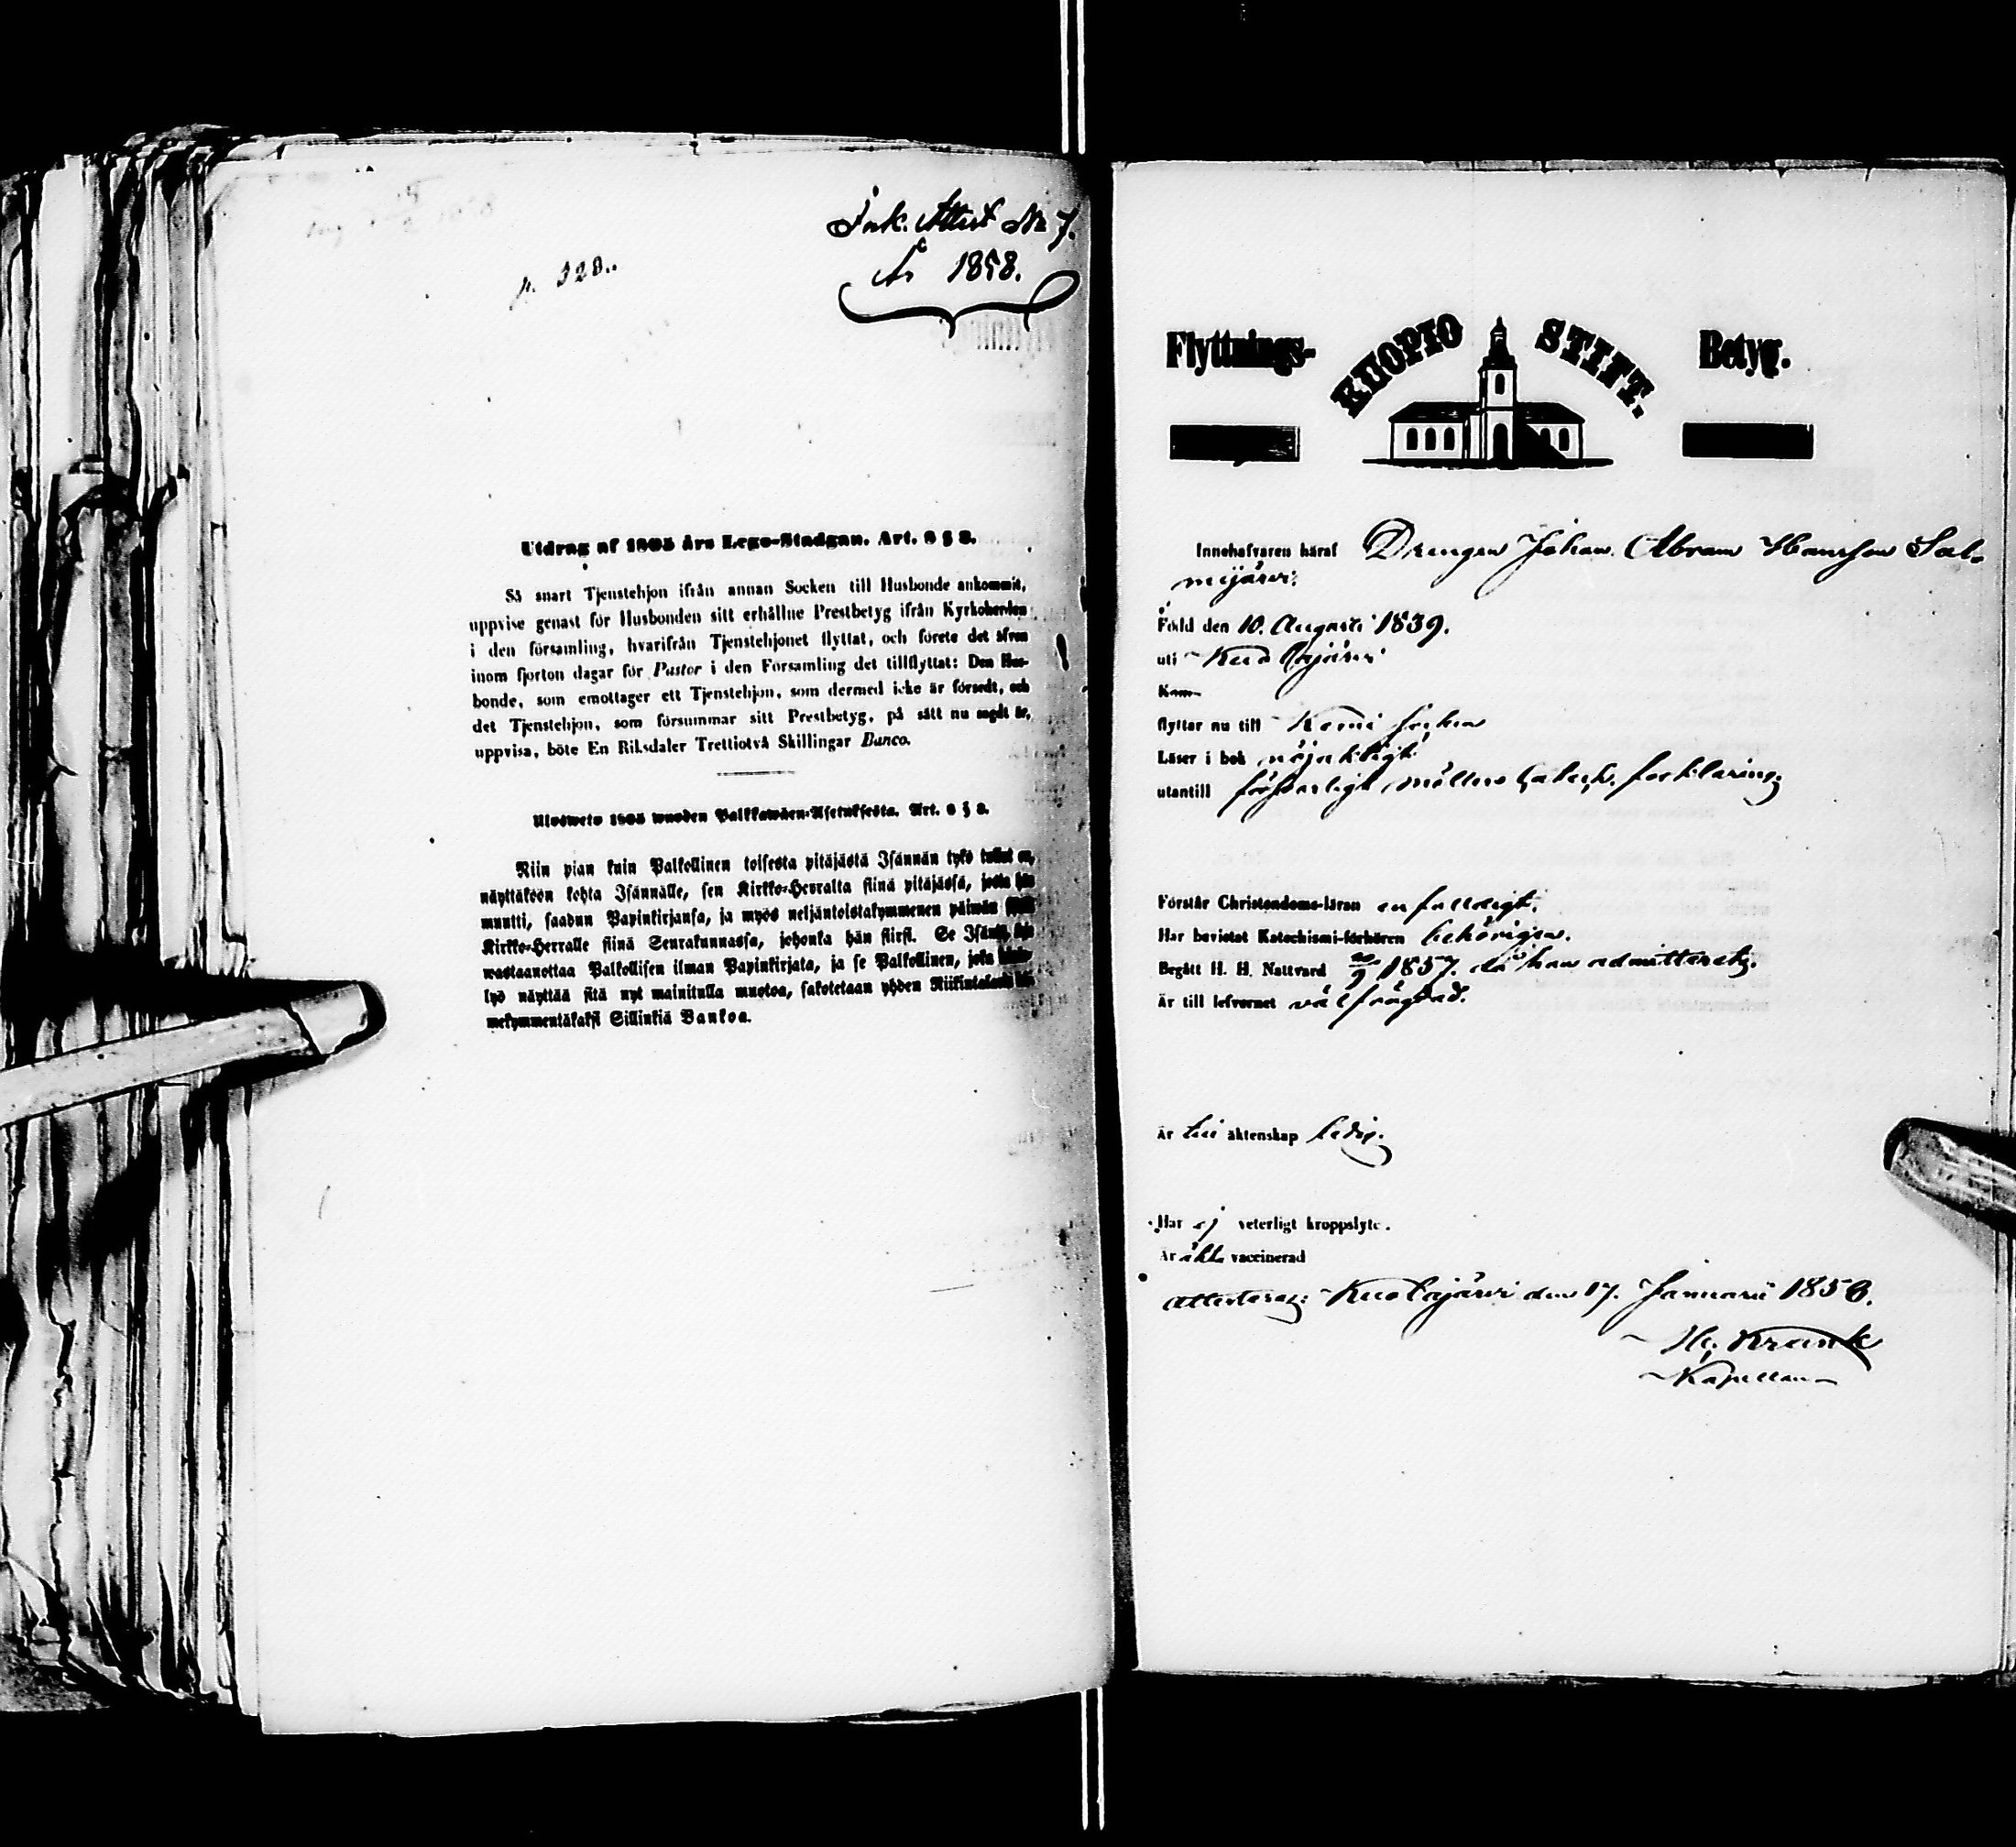 Ink. Attest No 7.
År 1858.
p. 320.
Utdrag af 1805 års Lego-Stadgan. Art. 6 § 8.
Så snart Tjenstehjon ifrån annan Socken till Husbonde ankommit,
uppvise genast för Husbonden sitt erhållne Prestbetyg ifrån Kyrkoherden
i den församling, hvarifrån Tjenstehjonet flyttat, och förete det äfven
inom fjorton dagar för Pastor i den Församling det tillflyttat: Den Hus-
bonde, som emottager ett Tjenstehjon, som dermed icke är försedt, och
det Tjenstehjon, som försummar sitt Prestbetyg, på sätt nu sagdt är,
uppvisa, böte En Riksdaler Trettiotvå Skillingar Banco.
Ulosweto 1805 wuoden Palkkawäen-Asetuksesta. Art. 6 § 8.
Niin pian kuin Palkollinen toisesta pitäjästä Isännän tykö tullut on,
näyttäköön kohta Isännälle, sen Kirkko-Herralta siinä pitäjässä, josta hän
muutti, saadun Papinkirjansa, ja myös neljäntoistakymmenen päiwän
Kirkko-Herralle siinä Seurakunnassa, johonka hän siirsi. Se Isäntä, joka
wastaanottaa Palkollisen ilman Papinkirjata, ja se Palkollinen, joka
lyö näyttää sitä nyt mainitulla muotoa, sakotetaan yhden Riikintalarin
mekymmentäkaksi Sillinkiä Bankoa.
Flyttnings- KUOPIO STIFT. Betyg.
Innehafvaren häraf Drengen Johan Abram Hansson Sal-
mijärvi.
Född den 10. Augusti 1839.
uti Kuolajärvi
flyttar nu till Kemi socken
Läser i bok nöjaktigt
utantill försvarligt Möllers Catech. förklaring.
Förstår Christendoms-läran enfaldigt.
Har bevistat Katechismi-förhören behörigen.
Begått H. H. Nattvard 20/9 1857. då han admitterats.
Är till lefvernet välfrägdad.
Är till äktenskap ledig.
Har ej veterligt kroppslyte.
Är äkta vaccinerad
Attesterar: Kuolajärvi den 17. Januarii 1858.
Hj. Krank
Kapellan